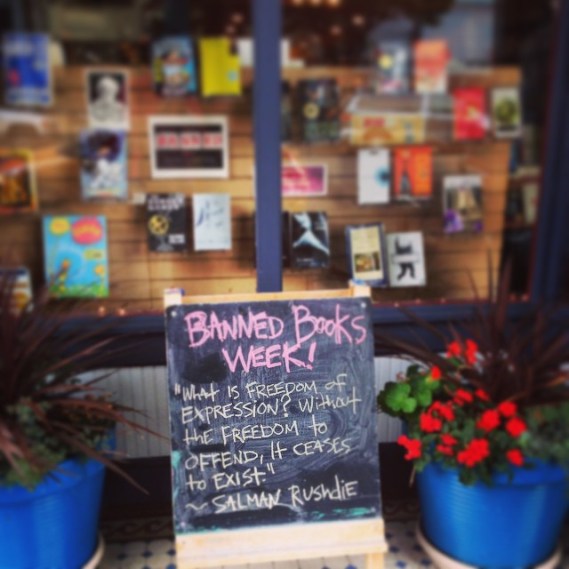 BANNED BOOKS
WEEK!
"WHAT IS FREEDOM of
EXPRESSION? Without
the FREEDOM to
OFFEND, It CEASES
to EXIST."
~ SALMAN RushdiE